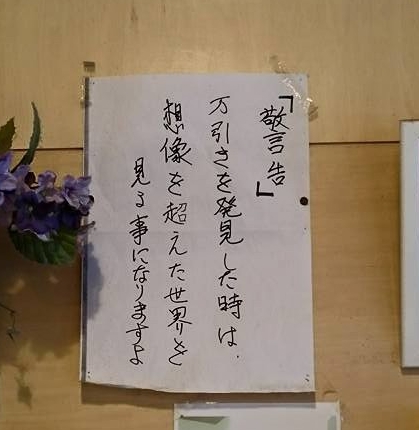 「警告」
万引きを発見した時は、
想像を超えた世界を
見る事になりますよ